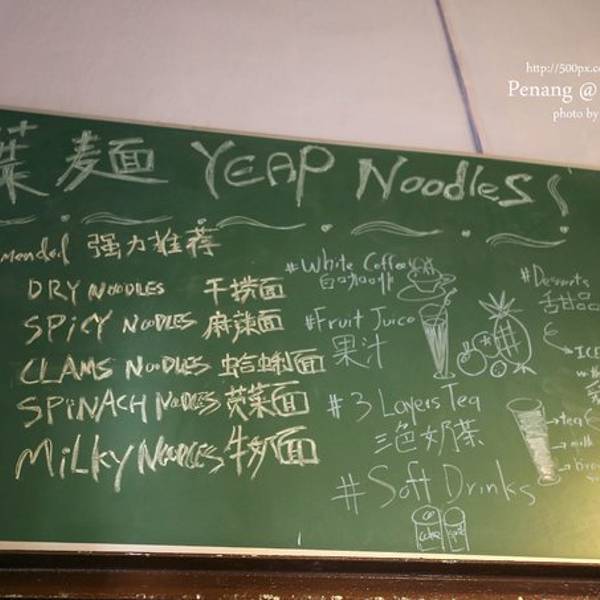 http://500px.co
Penang @
photo by
葉 麵面 YEAP NOODLES
mended 强力推荐
DRY NOODLES 干捞面
SPICY NOODLES 麻辣面
CLAMS NOODLES 蛤蜊面
SPINACH NOODLES 苋菜面
MILKY NOODLES 牛奶面
#White Coffee
白咖啡
#Fruit Juice
果汁
#3 Layers Tea
三色奶茶
#Soft Drinks
#Desserts
甜品
ICE
tea
milk